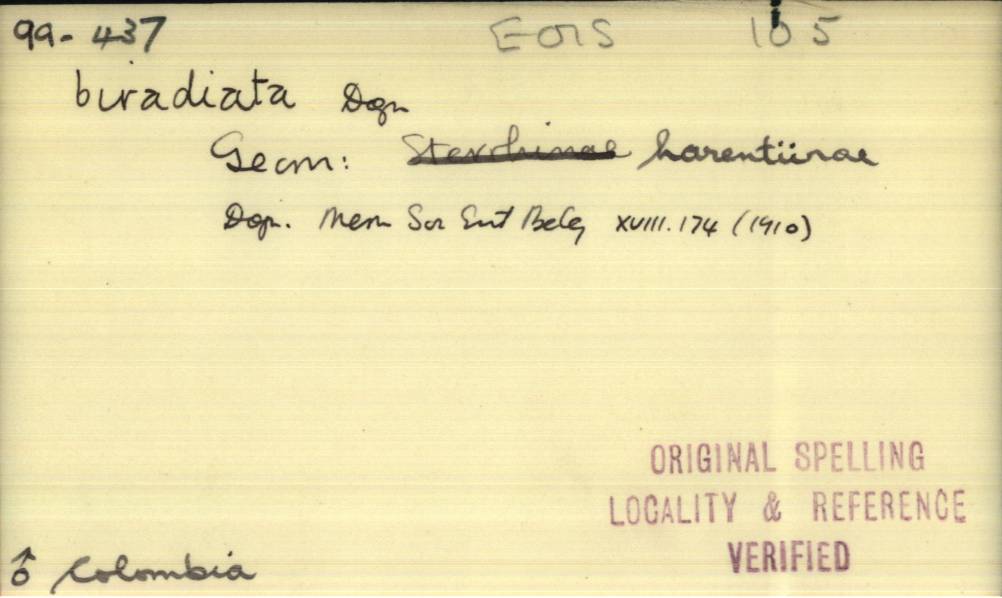 99-437 EOIS 105
biradiata Dgn
Geom: Sterrhinae larentiinae
Dgn. Mem Soc Ent Belg XVIII.174 (1910)
ORIGINAL SPELLING
LOCALITY & REFERENCE
VERIFIED
♂ Colombia